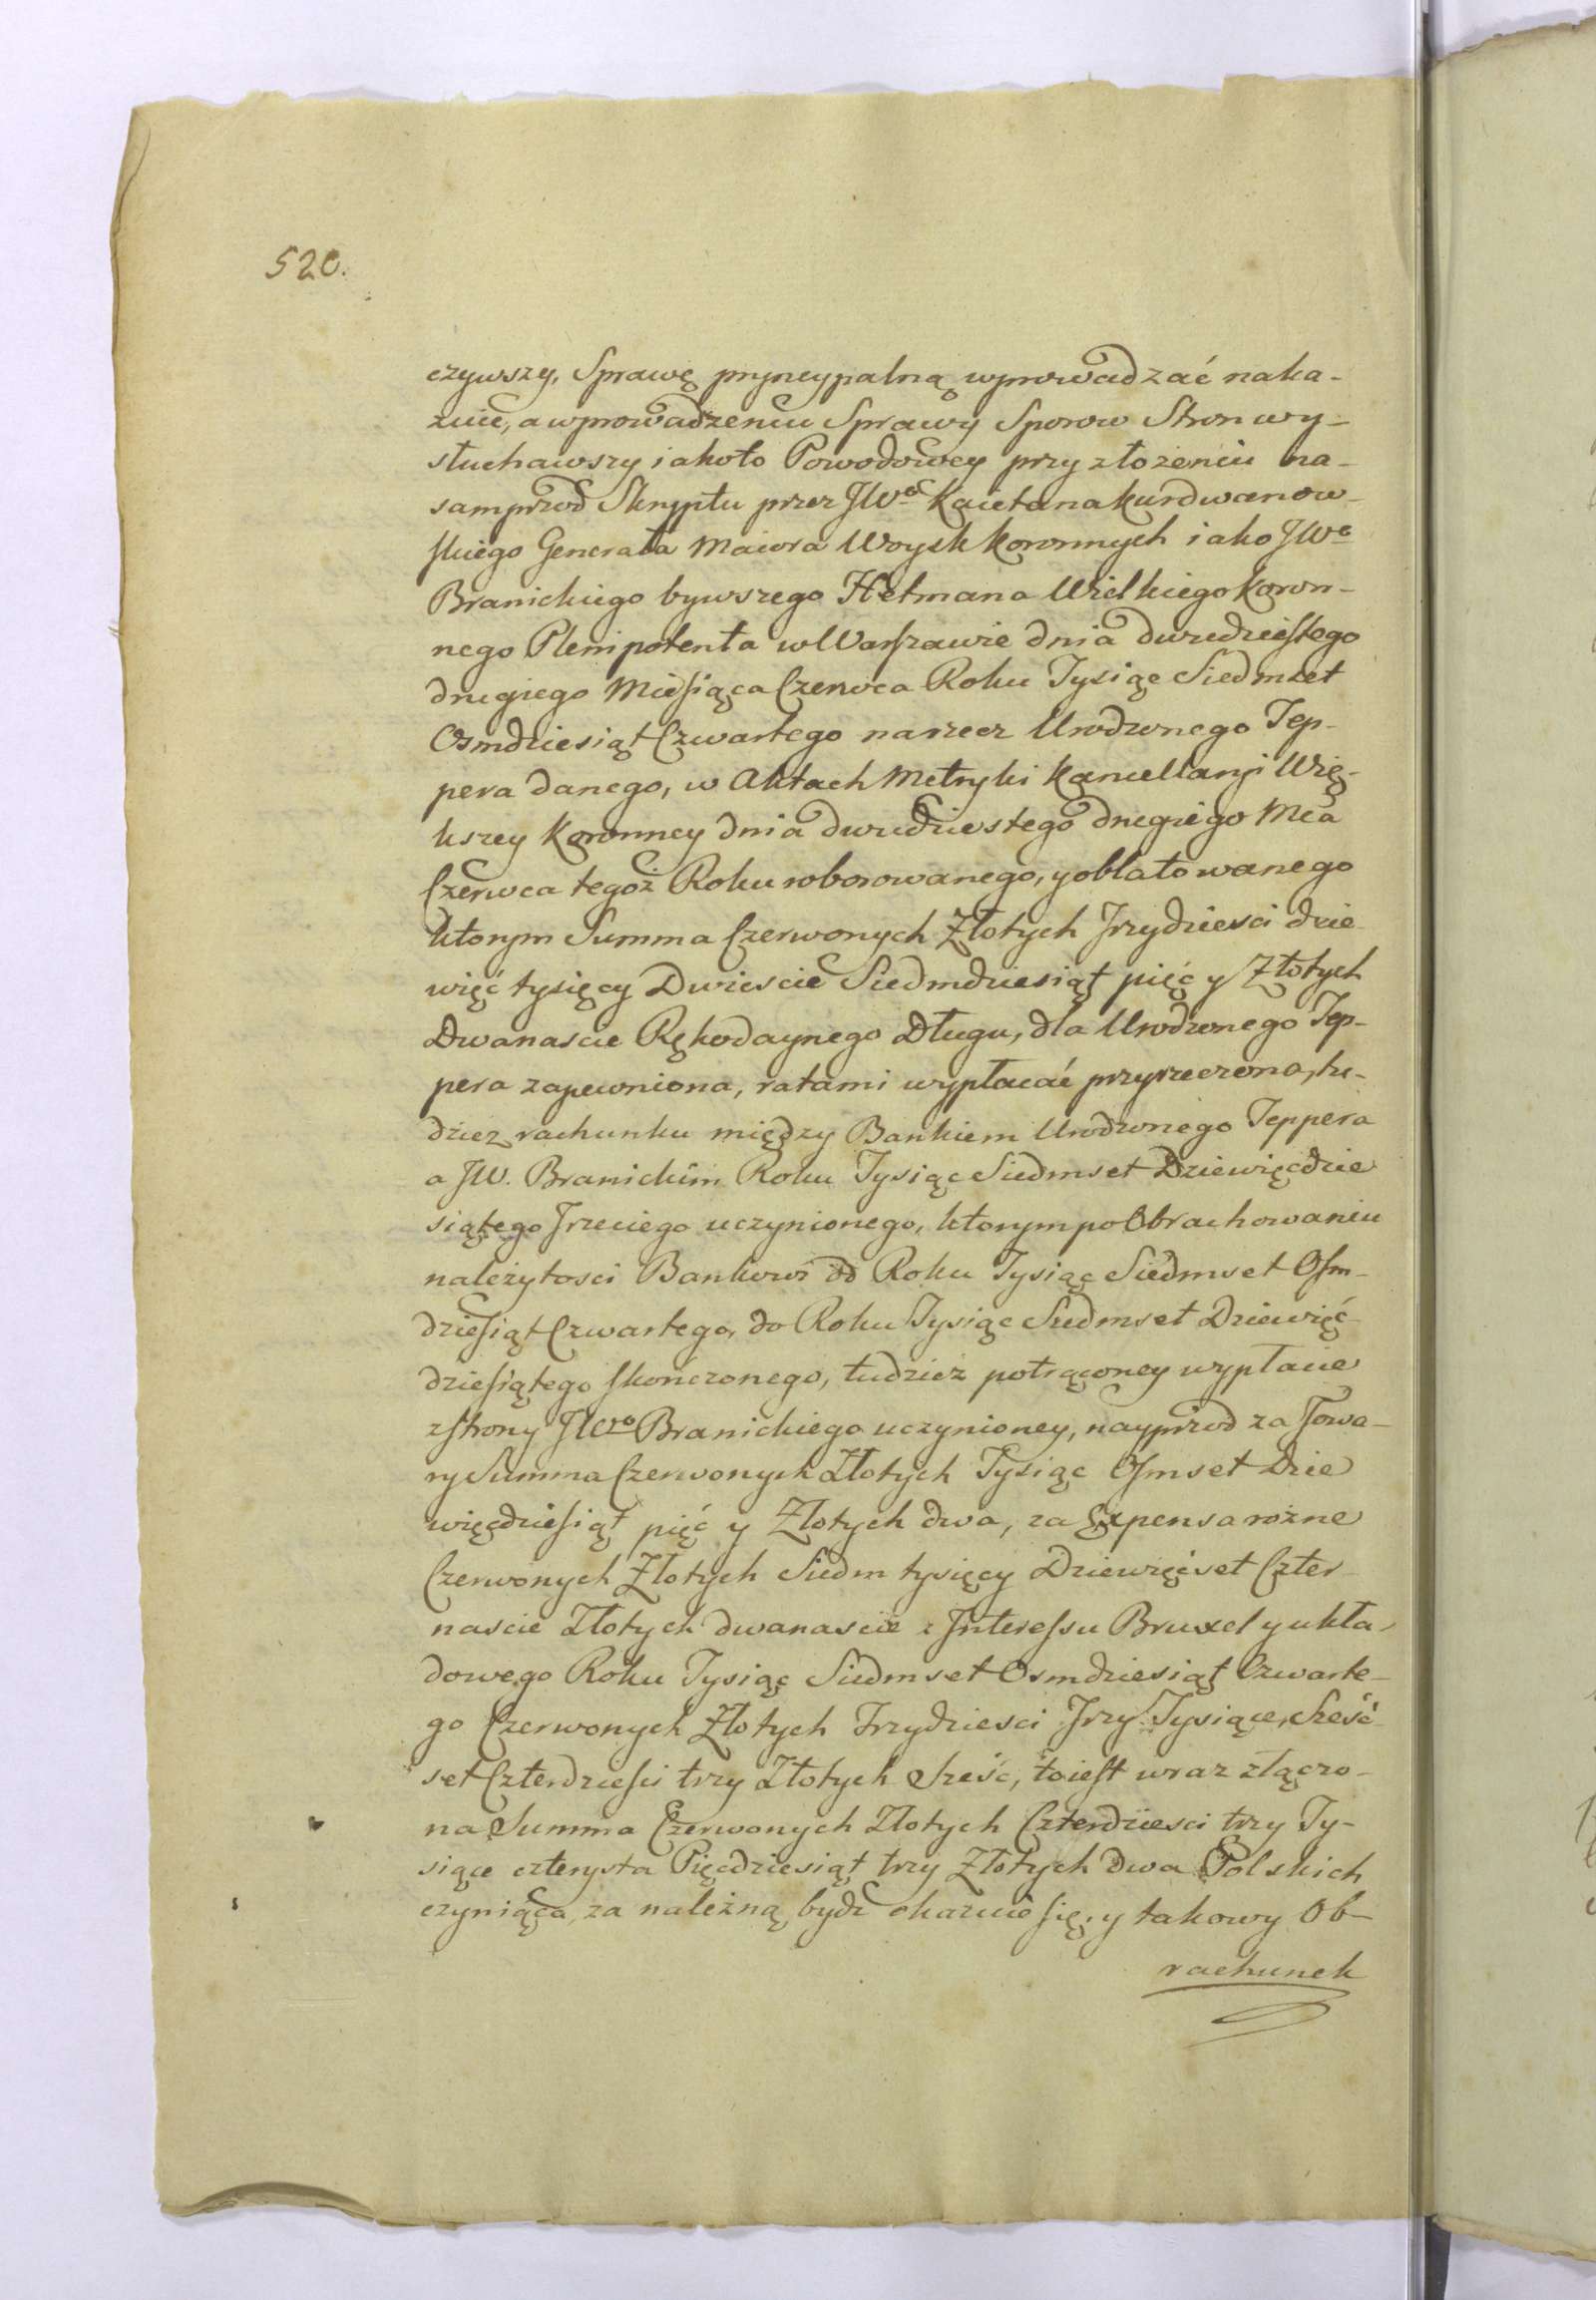 520.
czywszy, Sprawę pryncypalną wprowadzać naka-
zuie, a wprowadzeniu Sprawy Sporow Stron wy-
słuchawszy iakoto Powodowey przy złożeniu na-
samprzod Skryptu przez JWo Kaietana Kurdwanow-
skiego Generała Maiora Woysk Koronnych iako JWo
Branickiego bywszego Hetmana Wielkiego Koron-
nego Plenipotenta w Warszawie dnia dwudziestego
drugiego Miesiąca Czerwca Roku Tysiąc Siedmset
Osmdziesiąt Czwartego na rzecz Urodzonego Tep-
pera danego, w Aktach Metryki Kancellaryi Wię-
kszey Koronney dnia dwudziestego drugiego Mca
Czerwca tegoż Roku roborowanego, y oblatowanego
ktorym Summa Czerwonych Złotych Trzydziesci dzie
więć tysięcy Dwiescie Siedmdziesiąt pięć y Złotych
Dwanascie Rękodaynego Długu, dla Urodzonego Tep-
pera zapewniona, ratami wypłacać przyrzeczona, tu-
dzież rachunku między Bankiem Urodzonego Teppera
a JW. Branickim Roku Tysiąc Siedmset Dziewięćdzie
siątego Trzeciego uczynionego, ktorym po Obrachowaniu
należytosci Bankowi od Roku Tysiąc Siedmset Osm-
dziesiąt Czwartego, do Roku Tysiąc Siedmset Dziewięć
dziesiątego skończonego, tudzież potrąconey wypłacie
z strony JWo Branickiego uczynioney, nayprzod za Towa-
ry Summa Czerwonych Złotych Tysiąc Osmset Dzie
więćdziesiąt pięć y Złotych dwa, za Expensa rożne
Czerwonych Złotych Siedm tysięcy Dziewięćset Czter
nascie Złotych dwanascie z Interessu Bruxel y ukła-
dowego Roku Tysiąc Siedmset Osmdziesiąt Czwarte-
go Czerwonych Złotych Trzydziesci Trzy Tysiące, Sześć
set Czterdziesci trzy Złotych Sześć, toiest wraz złączo-
na Summa Czerwonych Złotych Czterdziesci trzy Ty-
siące czterysta Pięćdziesiąt trzy Złotych dwa Polskich
czyniąca, za należną bydź okazuie się, y takowy Ob-
rachunek